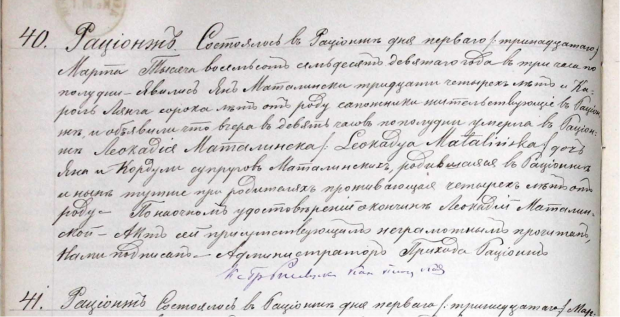 40. Раціонжъ. Состоялось въ Раціонжѣ дня перваго /:тринадцатаго/
Марта Тысяча восемьсотъ семьдесятъ девятаго года въ три часа по
полудни. Явились Янъ Маталински тридцати четырехъ лѣтъ и Ка-
роль Лянга сорока лѣтъ отъ роду сапожники жительствующіе въ Раціон-
жѣ, и объявили что вчера въ девять часовъ по полудни умерла въ Раціон-
жѣ Леокадія Маталинска /:Leokadya Matalińska/ дочь
Яна и Кордули супруговъ Маталинскихъ, родившаяся въ Раціонжѣ
и нынѣ тутже при родителяхъ проживающая четырехъ лѣтъ отъ
роду – По наочномъ удостовѣреніи о кончинѣ Леокадіи Маталин-
ской – Актъ сей присутствующимъ неграмотнымъ прочитанъ,
Нами подписанъ – Администраторъ Прихода Раціонжъ
41. Раціонжъ Состоялось въ Раціонжѣ дня перваго /:тринадцатаго/ Мар-